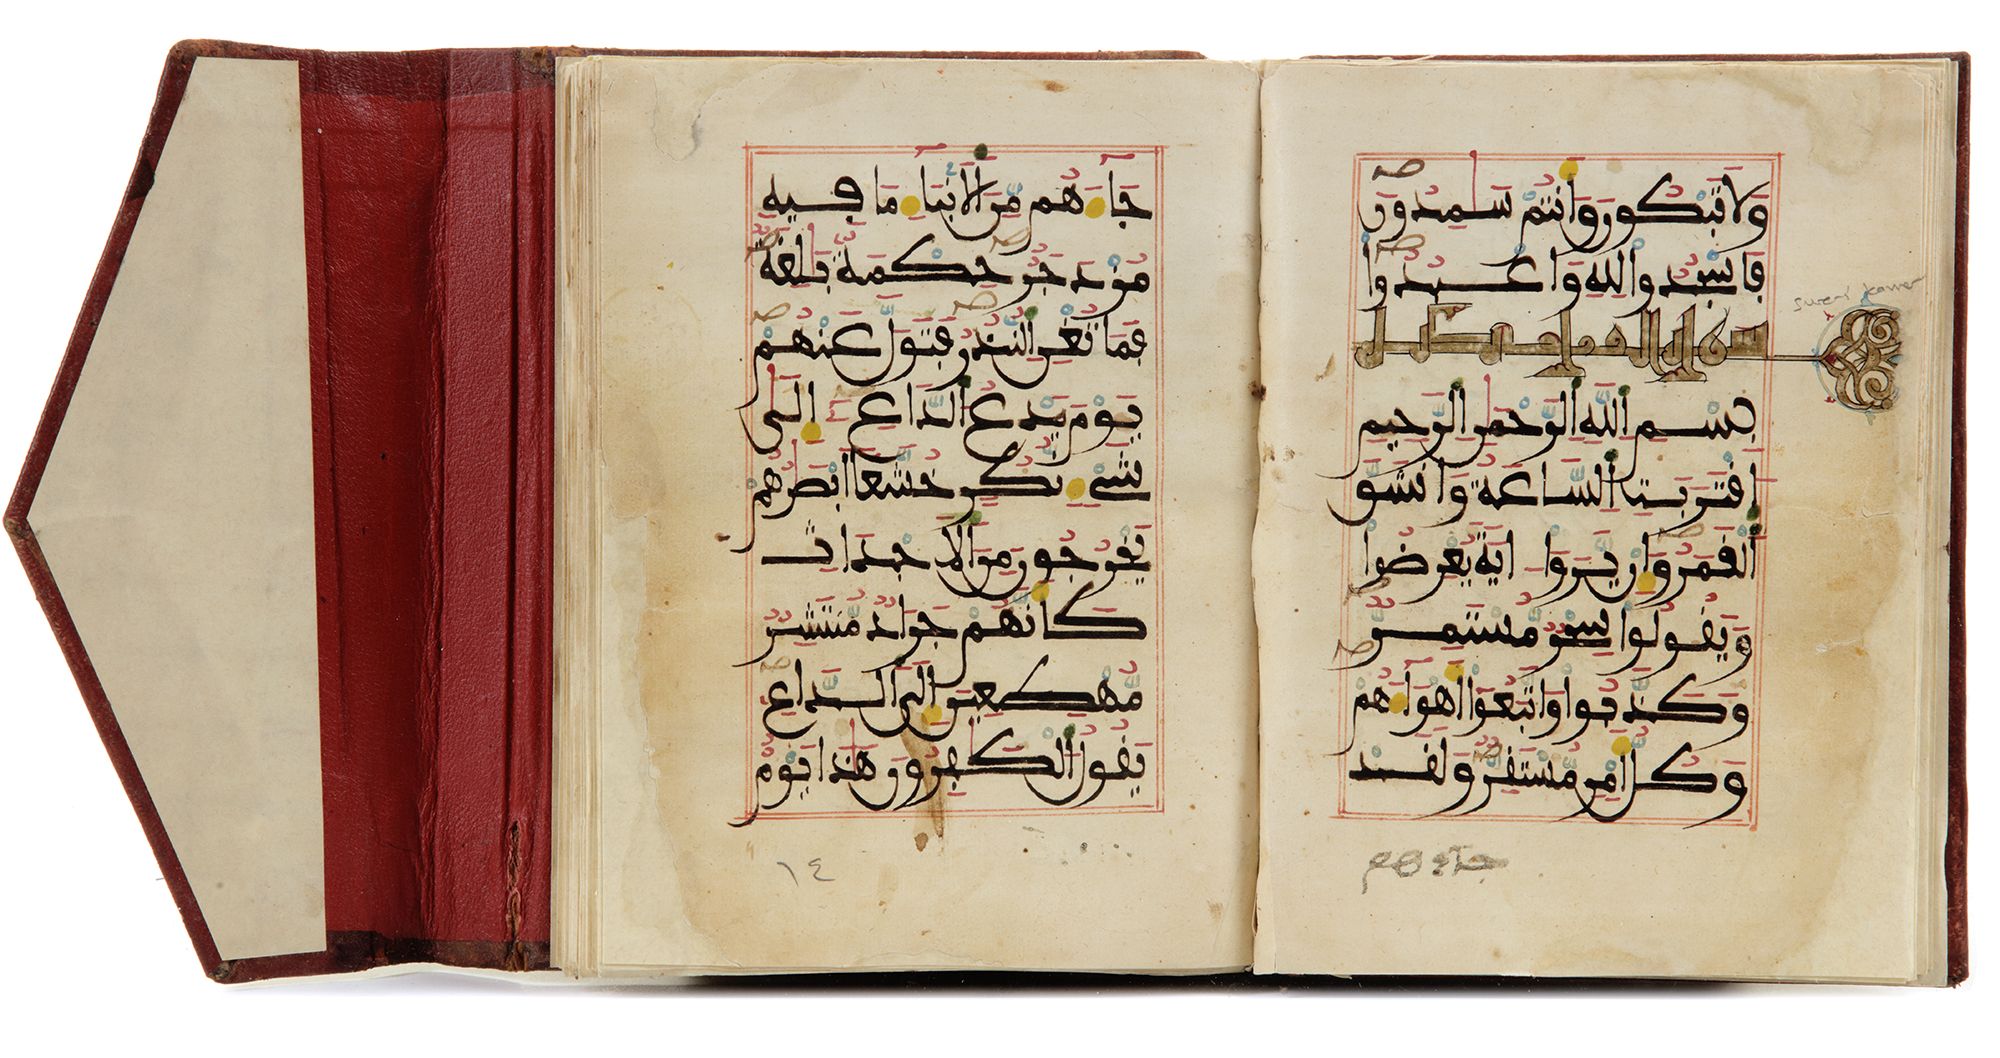 وَلَا تَبْكُونَ وَأَنتُمْ سَٰمِدُونَ
فَاسْجُدُوا لِلهِ وَاعْبُدُوا
surat kamer
بِسْمِ اللَّهِ الرَّحْمَٰنِ الرَّحِيمِ
اقْتَرَبَتِ السَّاعَةُ وَانشَقَّ
الْقَمَرُ وَإِنْ يَرَوْا ءَايَةً يُعْرِضُوا
وَيَقُولُوا سِحْرٌ مُّسْتَمِرٌّ
وَكَذَّبُوا وَاتَّبَعُوا أَهْوَاءَهُمْ
وَكُلُّ أَمْرٍ مُّسْتَقِرٌّ وَلَقَدْ
جاءهم
جَاءَهُم مِّنَ الْأَنبَاءِ مَا فِيهِ
مُزْدَجَرٌ حِكْمَةٌ بَٰلِغَةٌ
فَمَا تُغْنِ النُّذُرُ فَتَوَلَّ عَنْهُمْ
يَوْمَ يَدْعُ الدَّاعِ إِلَىٰ
شَيْءٍ نُّكُرٍ خُشَّعًا أَبْصَٰرُهُمْ
يَخْرُجُونَ مِنَ الْأَجْدَاثِ
كَأَنَّهُمْ جَرَادٌ مُّنتَشِرٌ
مُّهْطِعِينَ إِلَى الدَّاعِ
يَقُولُ الْكَٰفِرُونَ هَٰذَا يَوْمٌ
١٤